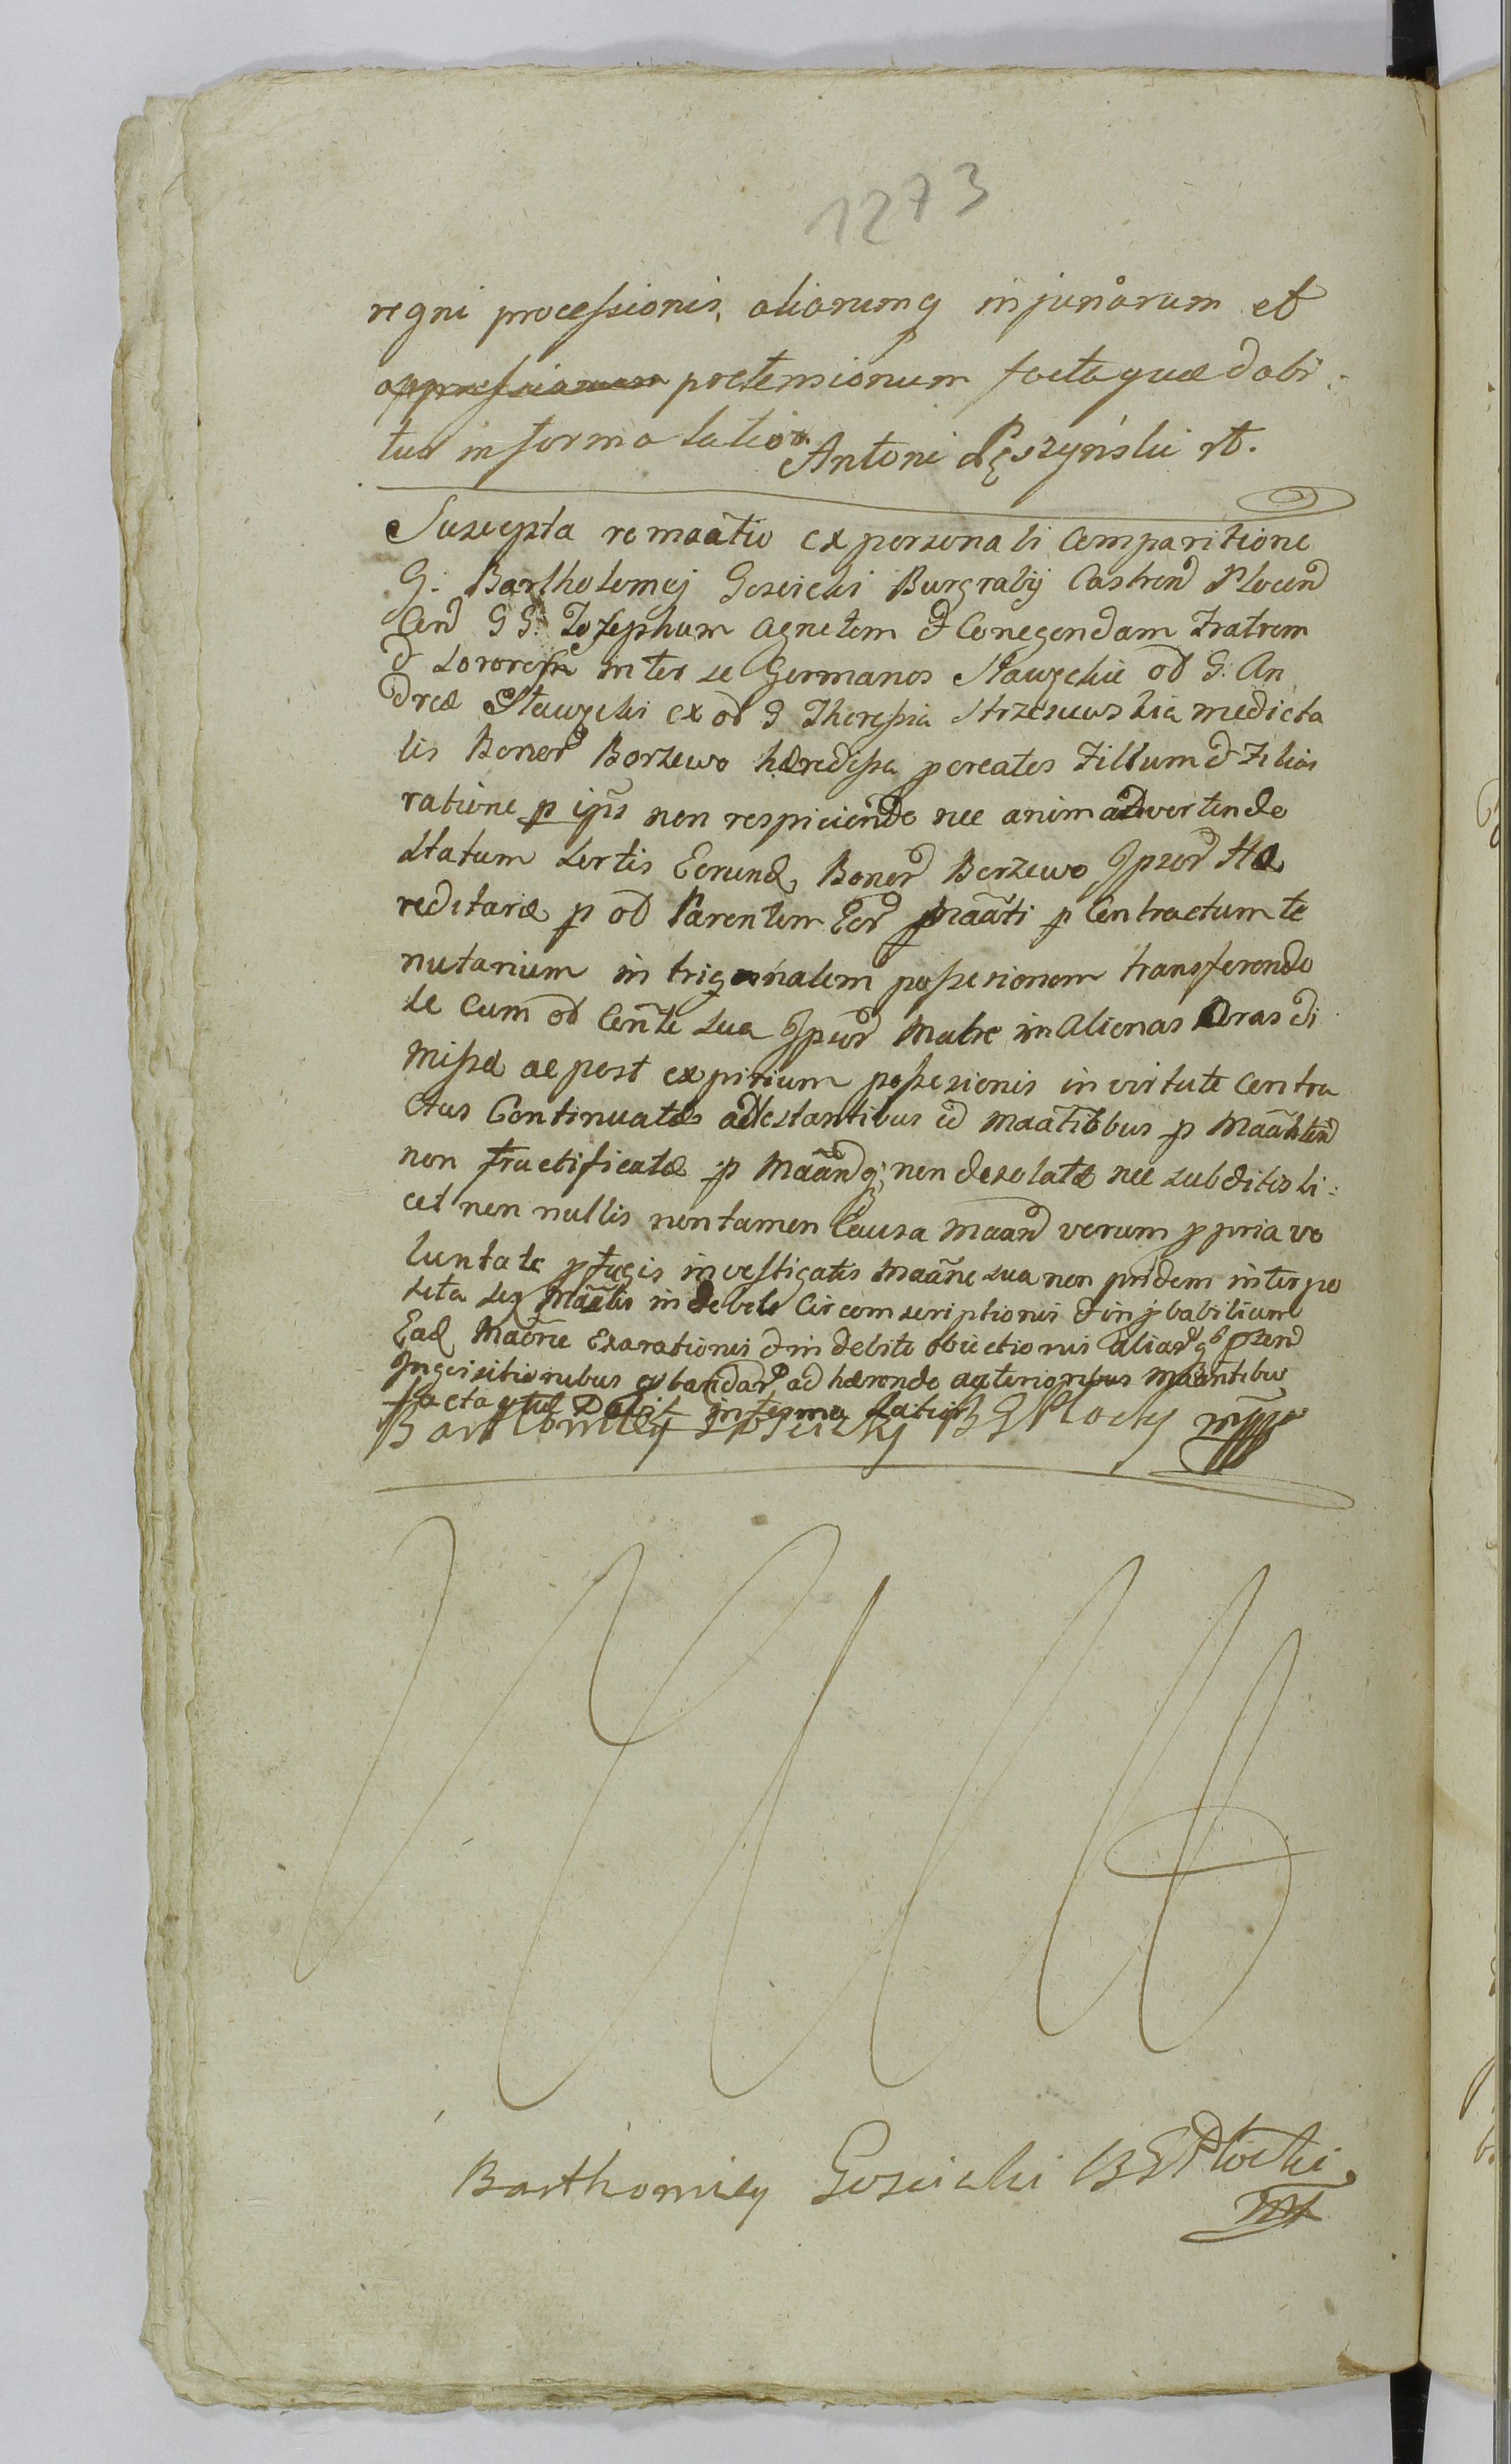 1273
regni processionis, aliarumq injuriarum et
oppressionum pretensionum factaquae dabi:
tur in forma latior. Antoni Pęszyński rt.
Suscepta remaãtio ex personali Comparitione
G: Bartholomej Goscicki Burgrabij Castren Plocen
Cen G G: Josephum Agnetem et Conegondam Fratrem
et Sororem inter se Germanos Stawęckie ol G: An
dreæ Stawęcki ex ol G Theressia Strzeszewskia medieta
tis Bonor Borzewo hæredissa pcreatos Filium et Filias
ratione p ipũs non respiciendo nec animadvertendo
Statum Sortis Eorund Bonor Borzewo Ipsor Hæ
reditariæ p ol Parentem Eor pmaãti p Contractum te
nutarium in trigonalem possesionem transferendo
se cum ol Conte sua Ipsor Matre in Alienas Oras di
missæ ac post expirium possesionis in virtute Contra
ctus Continuatæ adtestantibus id maãtibbus p Maãten
non fructificatæ p Maãnq; non desolatæ nec subditis li:
cet non nullis non tamen Causa maãn verum ppria vo
luntate pfugis investigatis Maãne sua non pridem interpo
sita seq maãtis indebete Circomscriptionis et in pbabilium
Ead Maõne Exarationis et in debite obiectionis aliarq psen
Inqisitionubus pbandar ad hærendo anterioribus Maãntibus
factaquæ Dabit in forma latior
Bartłomiey Goscicky B G Płocky mpp
Barthomiey Goscicki B G Płocki
mp